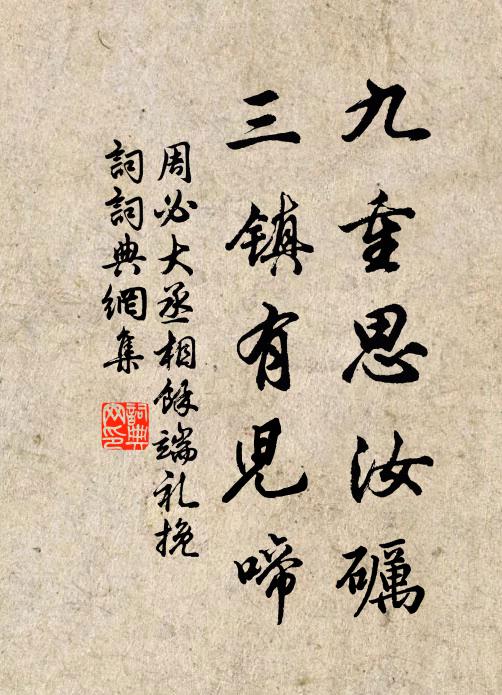 九重思汝礪
三镇有兒啼
周必大丞相餘端礼挽
詞詞典網集
詞典网印